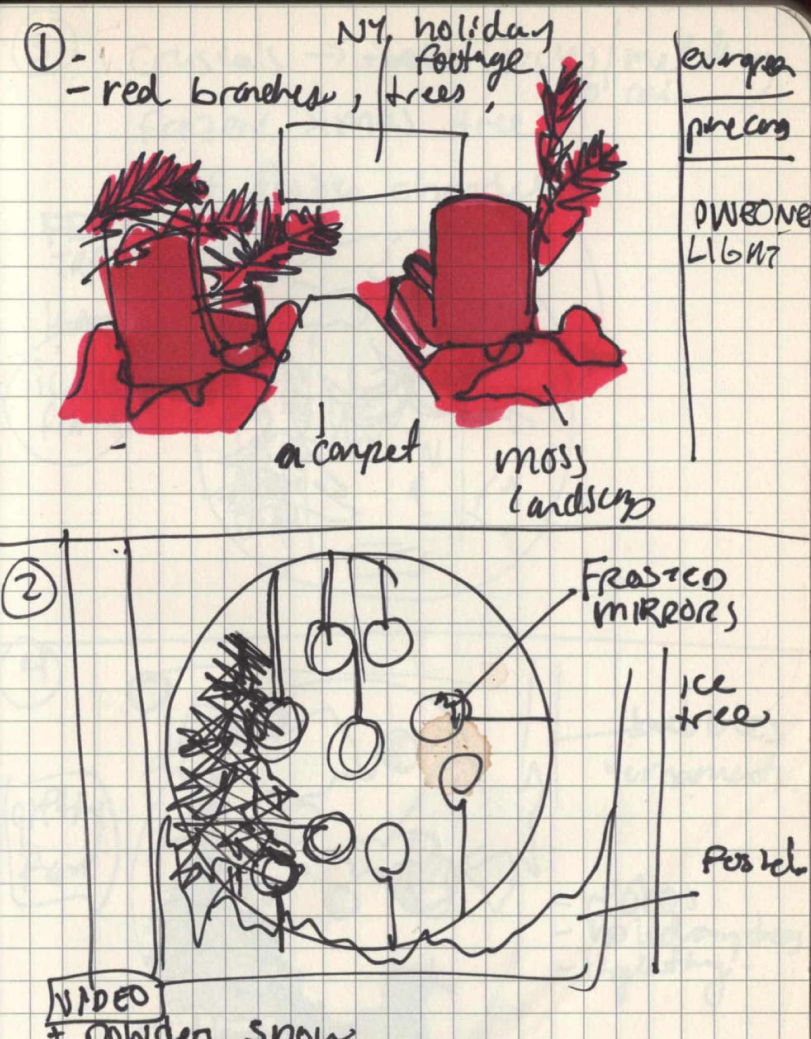 ①
NY, holiday
footage
- red branches, trees,
evergreen
pinecone
LIGHT
a carpet
moss
landscap
②
FROSTED
MIRRORS
ice
tree
VIDEO
+ powder snow